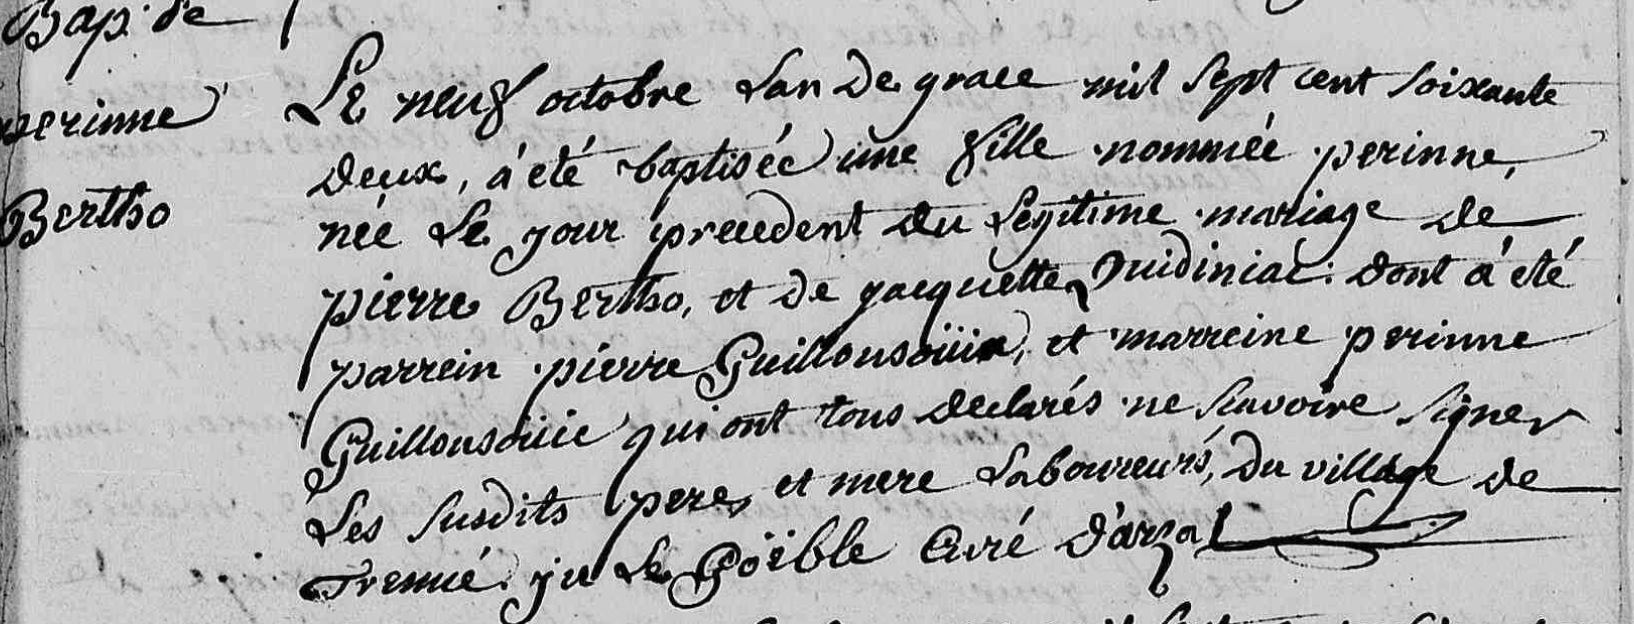 Bap. de
perinne
Bertho
Le neuf octobre L'an de grace mil sept cent soixante
deux, a été baptisée une fille nommée perinne,
née Le jour precedent du Legitime mariage de
pierre Bertho, et de jacquette Quidiniac. dont a été
parrein pierre Guillousouïic, et marreine perinne
Guillousouïic qui ont tous declarés ne scavoire signer
Les susdits pere, et mere Laboureurs, du village de
Tremué. j: Le Goëble Curé d'arzal